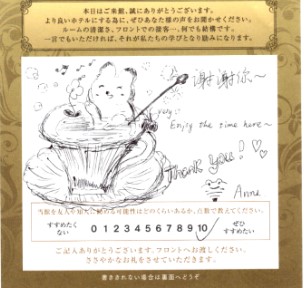 本日はご来館、誠にありがとうございます。
より良いホテルにする為に、ぜひあなた様の声をお聞かせください。
ルームの清潔さ、フロントでの接客…、何でも結構です。
一言でもいただければ、それが私たちの学びとなり励みになります。
謝謝你～
yay!
Enjoy the time here~
Thank you!
Anna
当館を友人や知人に勧める可能性はどのくらいあるか、点数で教えてください。
すすめたくない
0 1 2 3 4 5 6 7 8 9 10
ぜひすすめたい
ご記入ありがとうございます。フロントへお渡しください。
ささやかなお礼をさせていただきます。
書ききれない場合は裏面へどうぞ